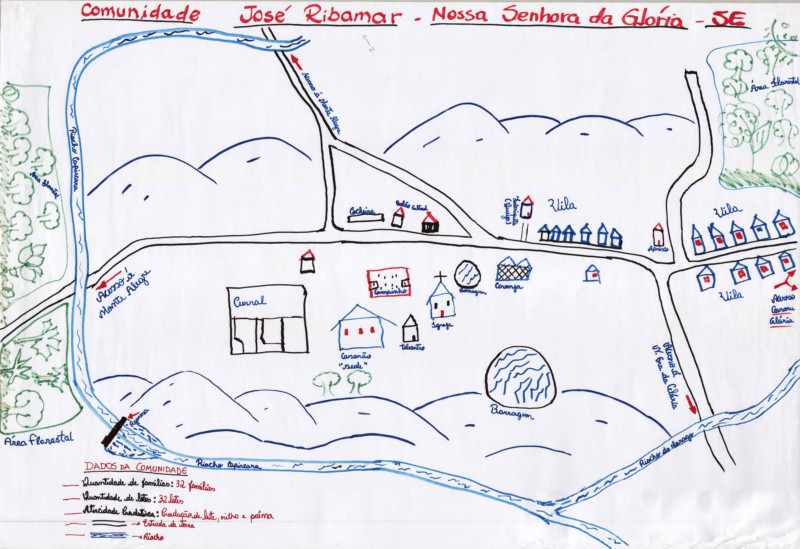 Comunidade José Ribamar - Nossa Senhora da Glória - SE
Acesso á Monte Alegre
Área Florestal
Riacho Capivara
Área Florestal
Cocheira
Vila
Vila
Acesso á
Monte Alegre
Curral
Campinho
Barragem
Igreja
Casarão
"Sede"
Barragem
Vila
Acesso
Glória
Acesso á
N. Sra da Glória
Área Florestal
Riacho Capivara
DADOS DA COMUNIDADE
Quantidade de famílias: 32 famílias
Quantidade de lotes: 32 lotes
Atividade Produtiva: Produção de leite, milho e palma
Estrada de terra
Riacho